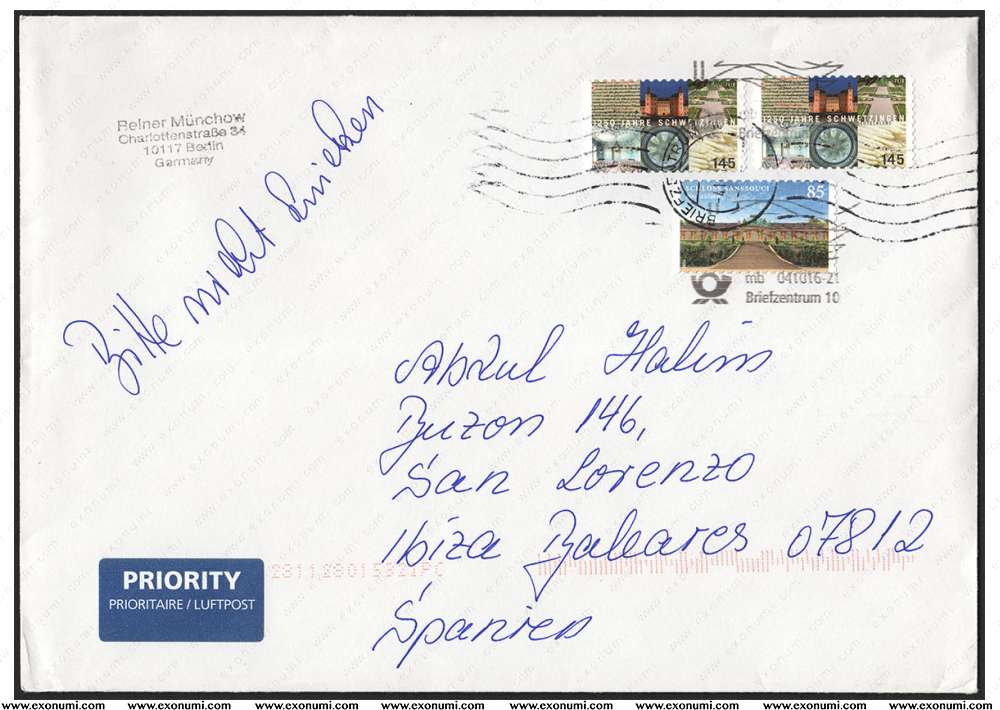 Reiner Münchow
Charlottenstraße 34
10117 Berlin
Germany
Bitte nicht knicken
1250 JAHRE SCHWETZINGEN
145
1250 JAHRE SCHWETZINGEN
145
SCHLOSS SANSSOUCI
85
mb 041016-21
Briefzentrum 10
Abdul Halim
Buzon 146,
San Lorenzo
Ibiza Baleares 07812
Spanien
PRIORITY
PRIORITAIRE / LUFTPOST
www.exonumi.com www.exonumi.com www.exonumi.com www.exonumi.com www.exonumi.com www.exonumi.com www.exonumi.com www.exonumi.com